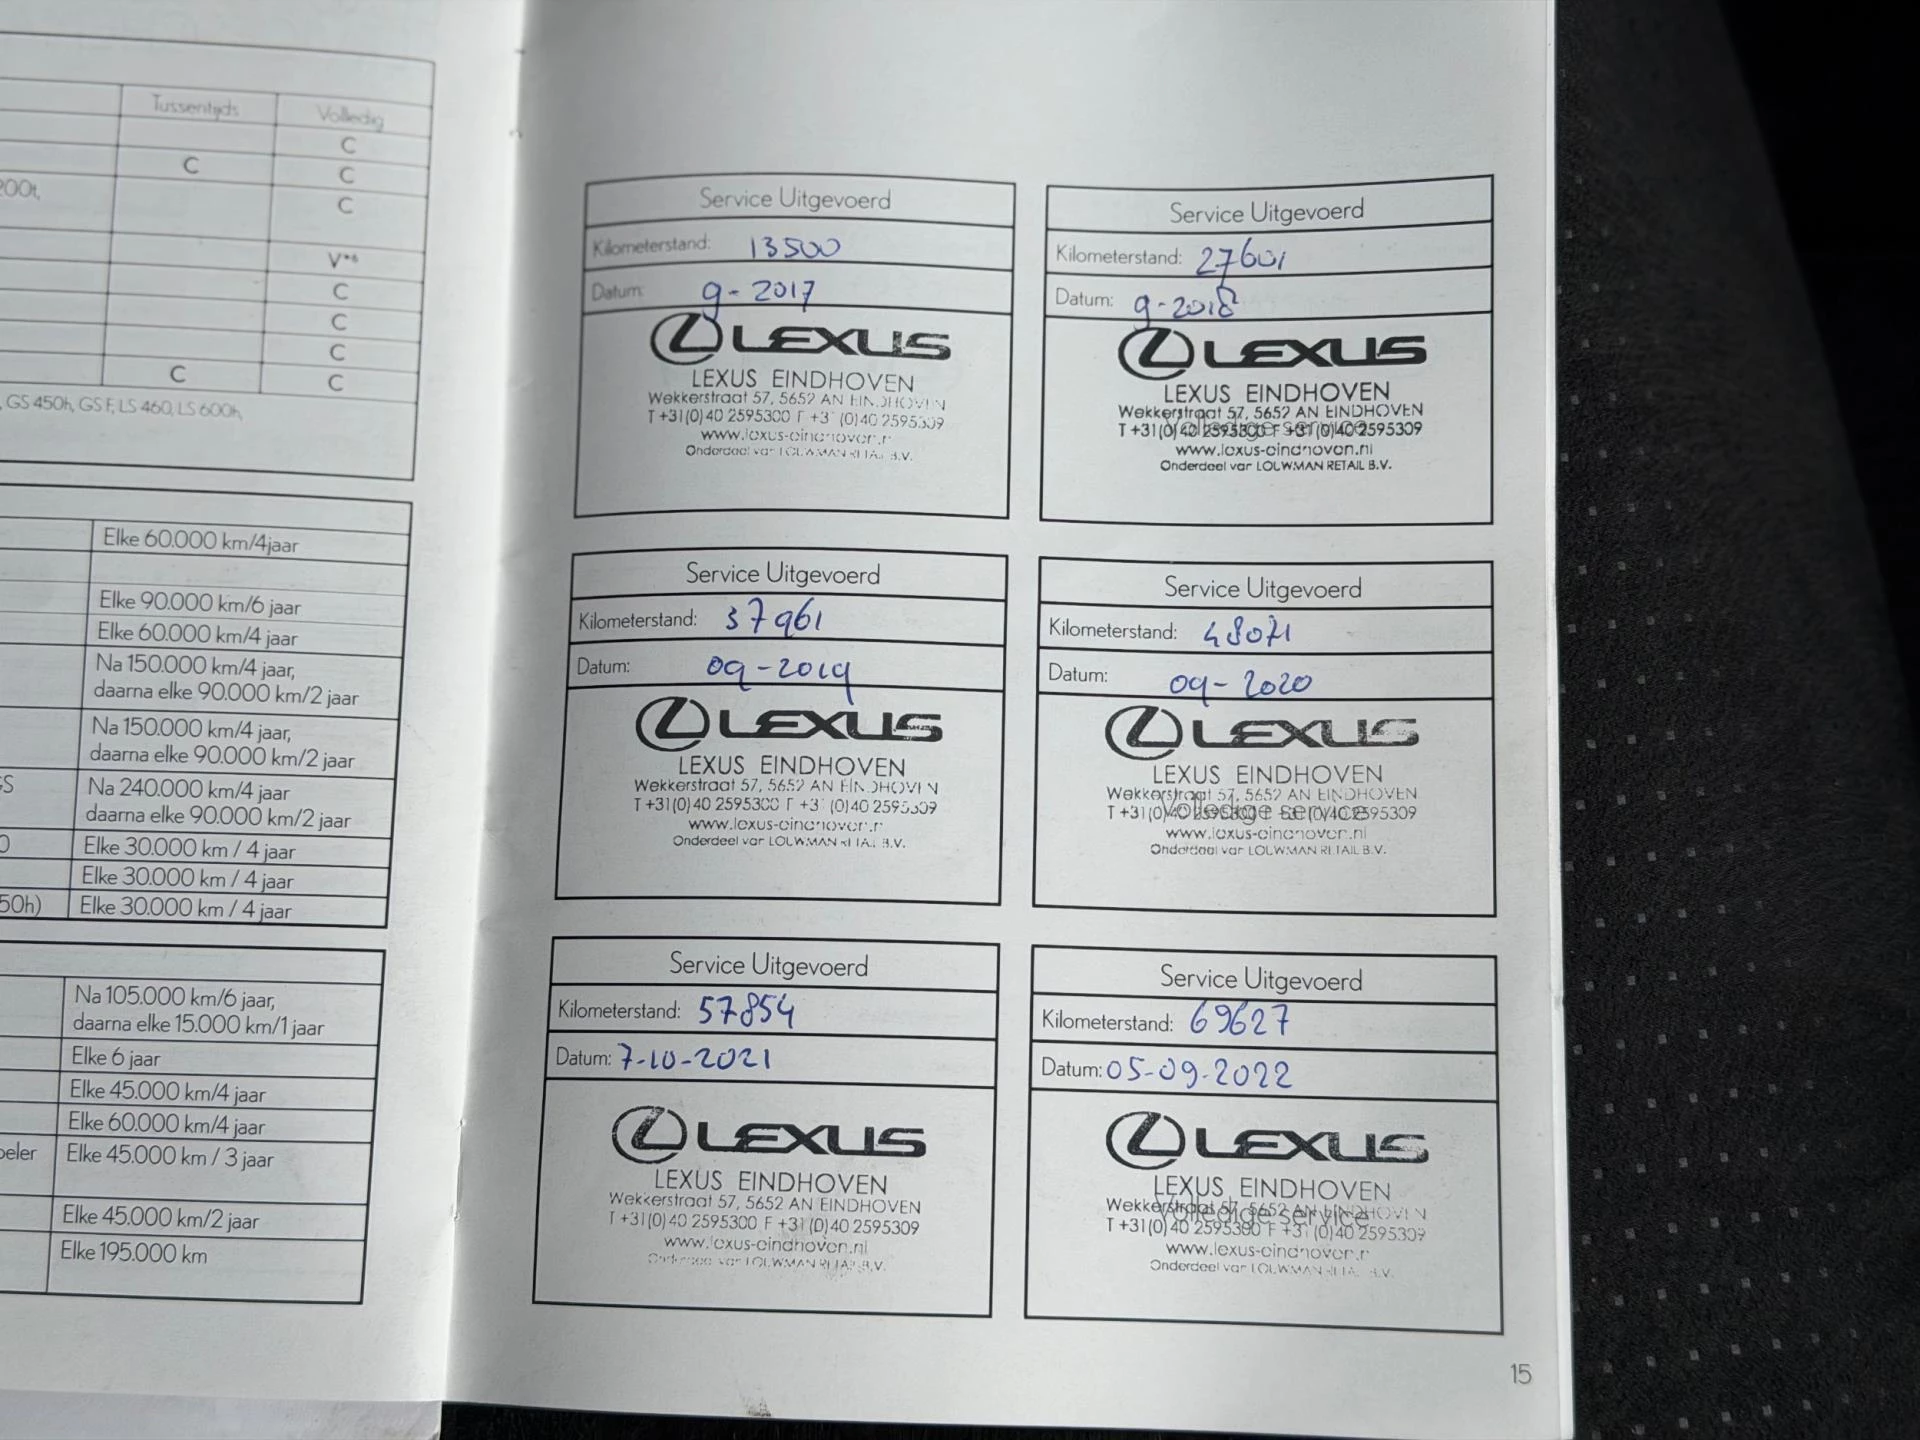 Tussentijds Volledig
C
C C
200t, C
V*6
C
C
C
C C
, GS 450h, GS F, LS 460, LS 600h,
Elke 60.000 km/4jaar
Elke 90.000 km/6 jaar
Elke 60.000 km/4 jaar
Na 150.000 km/4 jaar,
daarna elke 90.000 km/2 jaar
Na 150.000 km/4 jaar,
daarna elke 90.000 km/2 jaar
GS Na 240.000 km/4 jaar
daarna elke 90.000 km/2 jaar
Elke 30.000 km / 4 jaar
Elke 30.000 km / 4 jaar
50h) Elke 30.000 km / 4 jaar
Na 105.000 km/6 jaar,
daarna elke 15.000 km/1 jaar
Elke 6 jaar
Elke 45.000 km/4 jaar
Elke 60.000 km/4 jaar
peler Elke 45.000 km / 3 jaar
Elke 45.000 km/2 jaar
Elke 195.000 km
Service Uitgevoerd
Kilometerstand: 13500
Datum: 9-2017
LEXUS
LEXUS EINDHOVEN
Wekkerstraat 57, 5652 AN EINDHOVEN
T +31(0)40 2595300 F +31(0)40 2595309
www.lexus-eindhoven.nl
Onderdeel van LOUWMAN RETAIL B.V.
Service Uitgevoerd
Kilometerstand: 27601
Datum: 9-2018
LEXUS
LEXUS EINDHOVEN
Wekkerstraat 57, 5652 AN EINDHOVEN
Volledige service
T +31(0)40 2595300 F +31(0)40 2595309
www.lexus-eindhoven.nl
Onderdeel van LOUWMAN RETAIL B.V.
Service Uitgevoerd
Kilometerstand: 37961
Datum: 09-2019
LEXUS
LEXUS EINDHOVEN
Wekkerstraat 57, 5652 AN EINDHOVEN
T +31(0)40 2595300 F +31(0)40 2595309
www.lexus-eindhoven.nl
Onderdeel van LOUWMAN RETAIL B.V.
Service Uitgevoerd
Kilometerstand: 48071
Datum: 09-2020
LEXUS
LEXUS EINDHOVEN
Wekkerstraat 57, 5652 AN EINDHOVEN
Volledige service
T +31(0)40 2595300 F +31(0)40 2595309
www.lexus-eindhoven.nl
Onderdeel van LOUWMAN RETAIL B.V.
Service Uitgevoerd
Kilometerstand: 57854
Datum: 7-10-2021
LEXUS
LEXUS EINDHOVEN
Wekkerstraat 57, 5652 AN EINDHOVEN
T +31(0)40 2595300 F +31(0)40 2595309
www.lexus-eindhoven.nl
Onderdeel van LOUWMAN RETAIL B.V.
Service Uitgevoerd
Kilometerstand: 69627
Datum: 05-09-2022
LEXUS
LEXUS EINDHOVEN
Wekkerstraat 57, 5652 AN EINDHOVEN
Volledige service
T +31(0)40 2595300 F +31(0)40 2595309
www.lexus-eindhoven.nl
Onderdeel van LOUWMAN RETAIL B.V.
15